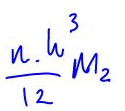 n.h³/12 M₂